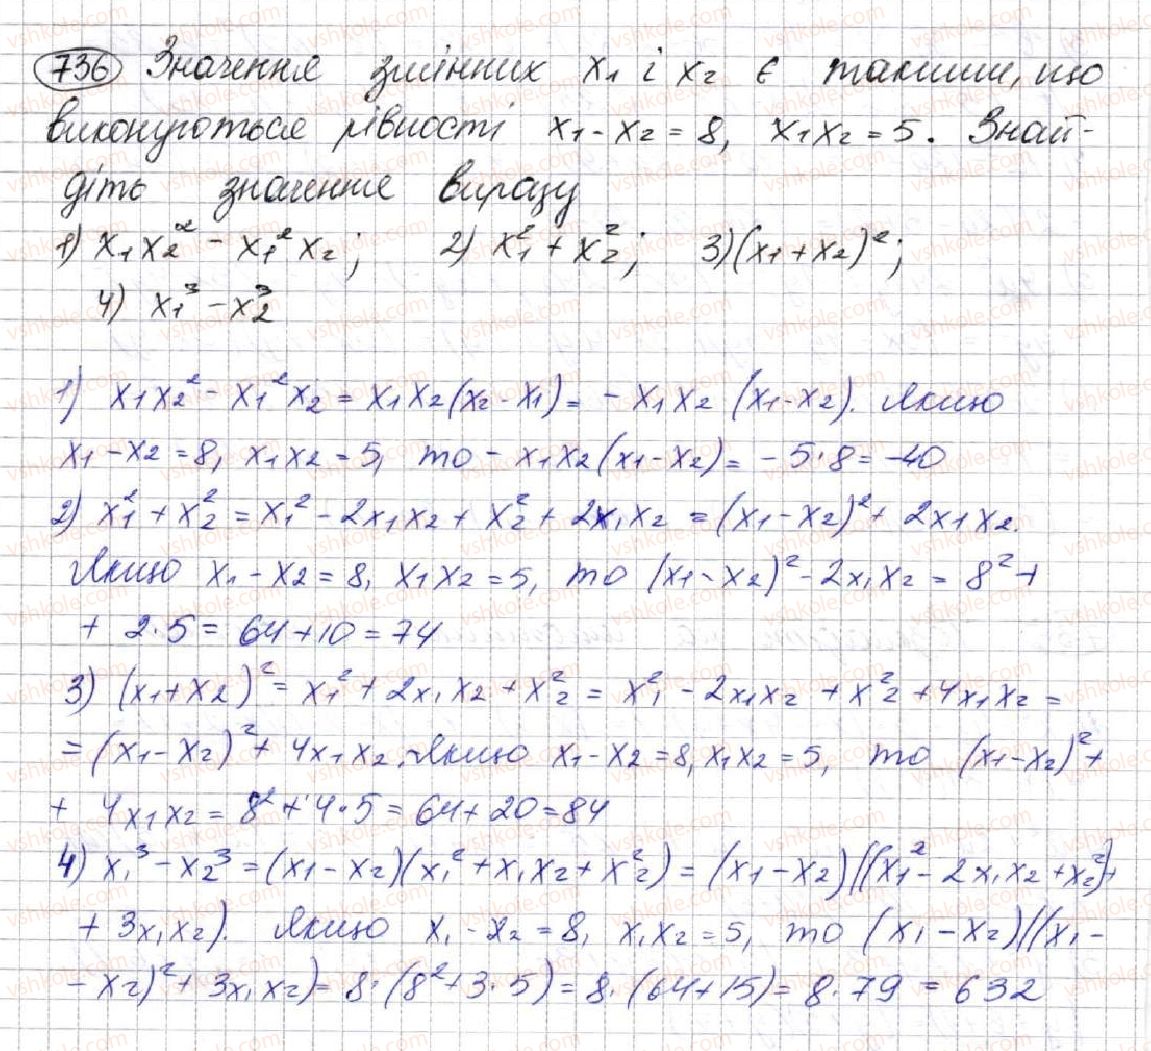 736 Значення змінних x₁ і x₂ є такими, що
виконуються рівності x₁ - x₂ = 8, x₁x₂ = 5. Знай-
діть значення виразу
1) x₁x₂² - x₁²x₂; 2) x₁² + x₂²; 3) (x₁+x₂)²;
4) x₁³ - x₂³
1) x₁x₂² - x₁²x₂ = x₁x₂(x₂ - x₁) = - x₁x₂ (x₁-x₂). Якщо
x₁ - x₂ = 8, x₁x₂ = 5, то - x₁x₂(x₁-x₂) = - 5·8 = -40
2) x₁² + x₂² = x₁² - 2x₁x₂ + x₂² + 2x₁x₂ = (x₁-x₂)² + 2x₁x₂.
Якщо x₁ - x₂ = 8, x₁x₂ = 5, то (x₁ - x₂)² - 2x₁x₂ = 8² +
+ 2·5 = 64+10 = 74
3) (x₁+x₂)² = x₁² + 2x₁x₂ + x₂² = x₁² - 2x₁x₂ + x₂² + 4x₁x₂ =
= (x₁-x₂)² + 4x₁x₂. Якщо x₁-x₂ = 8, x₁x₂ = 5, то (x₁-x₂)² +
+ 4x₁x₂ = 8² + 4·5 = 64+20 = 84
4) x₁³ - x₂³ = (x₁-x₂)(x₁² + x₁x₂ + x₂²) = (x₁-x₂)((x₁² - 2x₁x₂ + x₂²)+
+ 3x₁x₂). Якщо x₁ - x₂ = 8, x₁x₂ = 5, то (x₁-x₂)((x₁-
- x₂)² + 3x₁x₂) = 8·(8²+3·5) = 8·(64+15) = 8·79 = 632